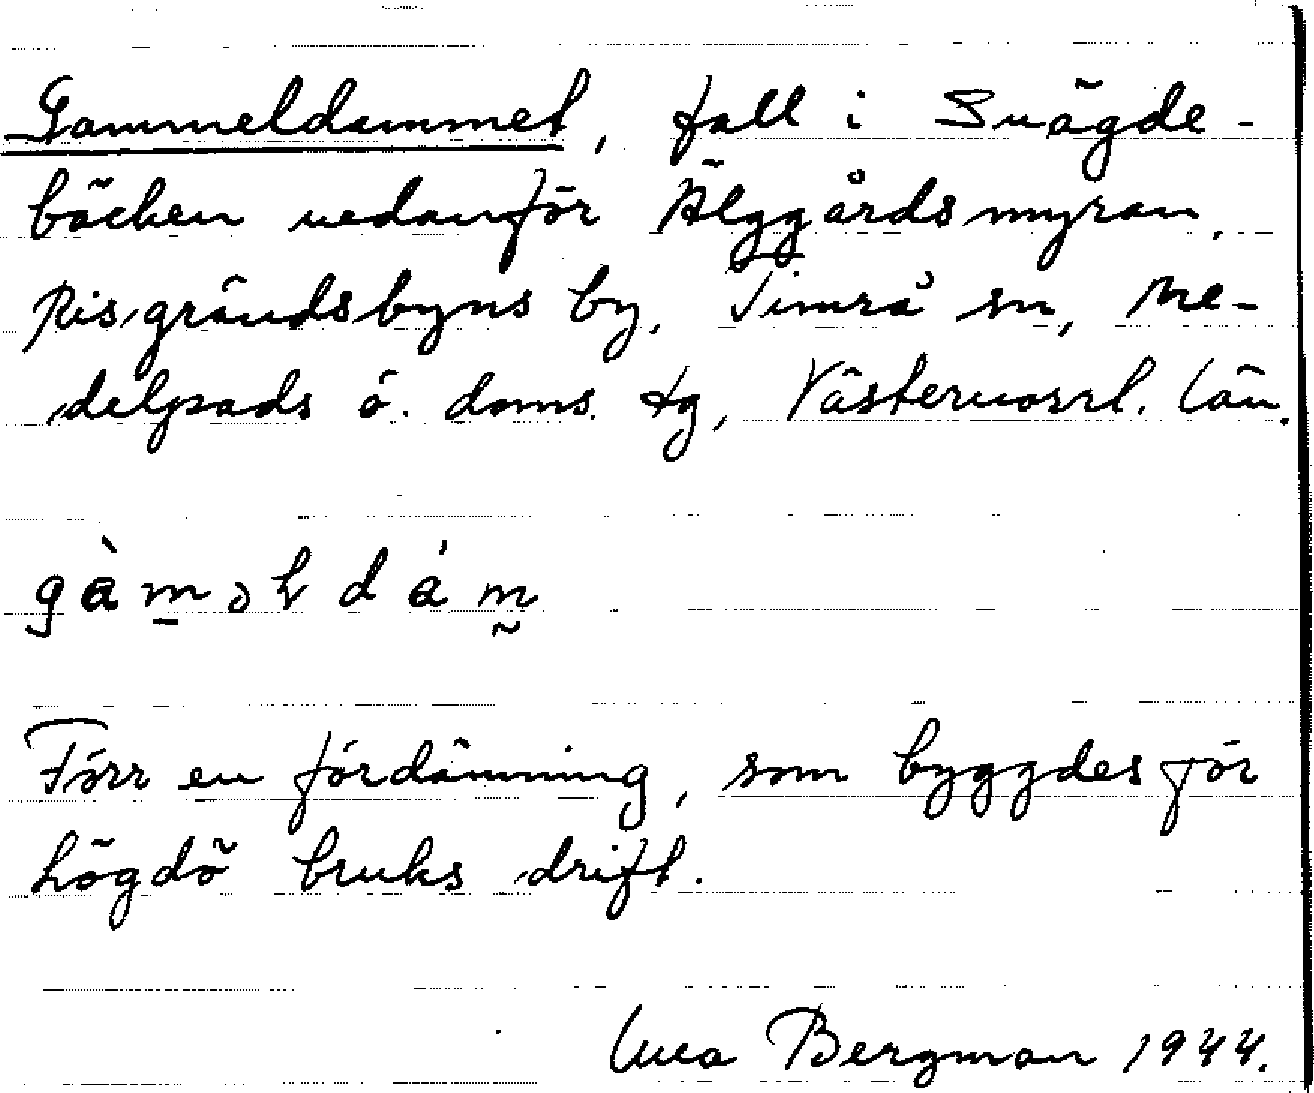 Gammeldammet, fall i Snägde-
bäcken nedanför Älggårdsmyran,
Risgrändsbyns by, Timrå sn, Me-
delpads ö. doms. tg, Västernorrl. län.
gàməldám̃
Förr en fördämning, som byggdes för
högdö bruks drift.
Bergman 1944.